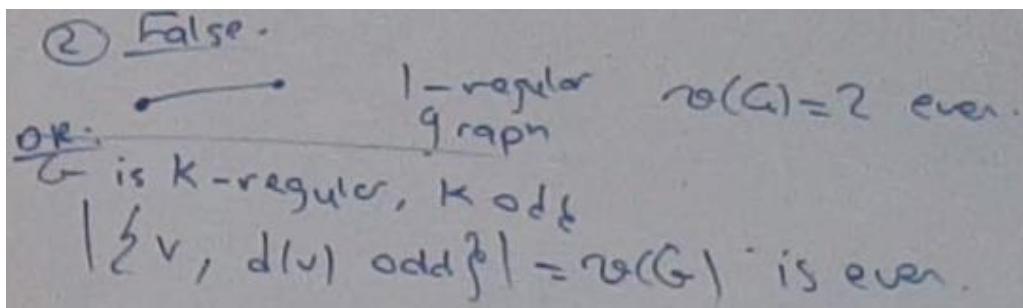 ② False.
1-regular v(G)=2 even.
graph
OR:
G is K-regular, K odd
|{v, d(v) odd}| = v(G) is even.